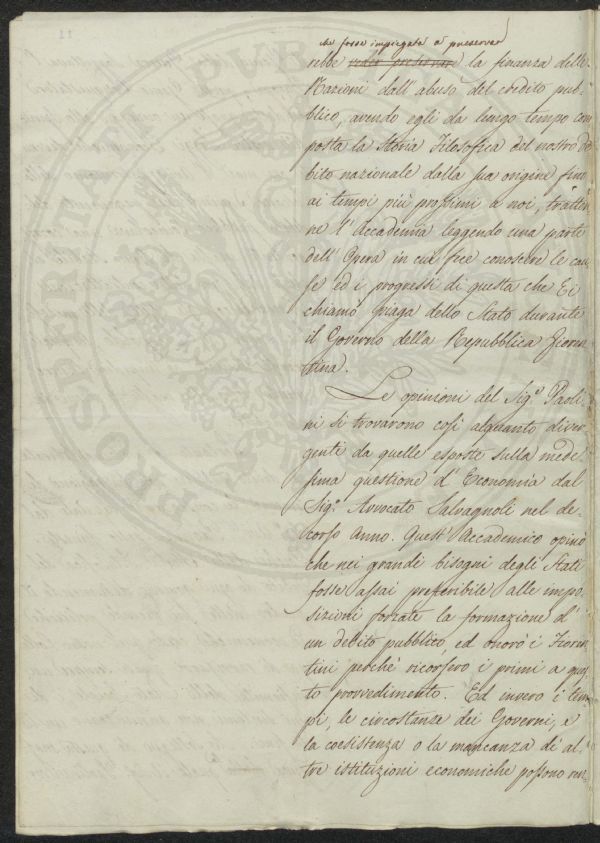 che fosse impiegata a preservar
rebbe veder preservare la finanza delle
Nazioni dall' abuso del credito pub-
blico, avendo egli da lungo tempo com
posta la Storia Filosofica del nostro de
bito nazionale dalla sua origine fino
ai tempi più prossimi a noi, tratten
ne l' Accademia leggendo una parte
dell' Opera in cui fece conoscere le cau
se ed i progressi di questa che Ei
chiamò piaga dello Stato durante
il Governo della Repubblica Fioren
tina.
Le opinioni del Sig.e Paoli-
ni si trovarono così alquanto diver-
genti da quelle esposte sulla mede-
sima questione d' Economia dal
Sig.e Avvocato Salvagnoli nel de-
corso Anno. Quest' Accademico opinò
che nei grandi bisogni degli Stati
fosse assai preferibile alle impo-
sizioni forzate la formazione d'
un debito pubblico, ed onorò i Fioren
tini perchè ricorsero i primi a ques
to provvedimento. Ed invero i tem-
pi, le circostanze dei Governi, e
la coesistenza o la mancanza di al-
tre istituzioni economiche possono ren-
PROSPERITAS PVBLICA
11